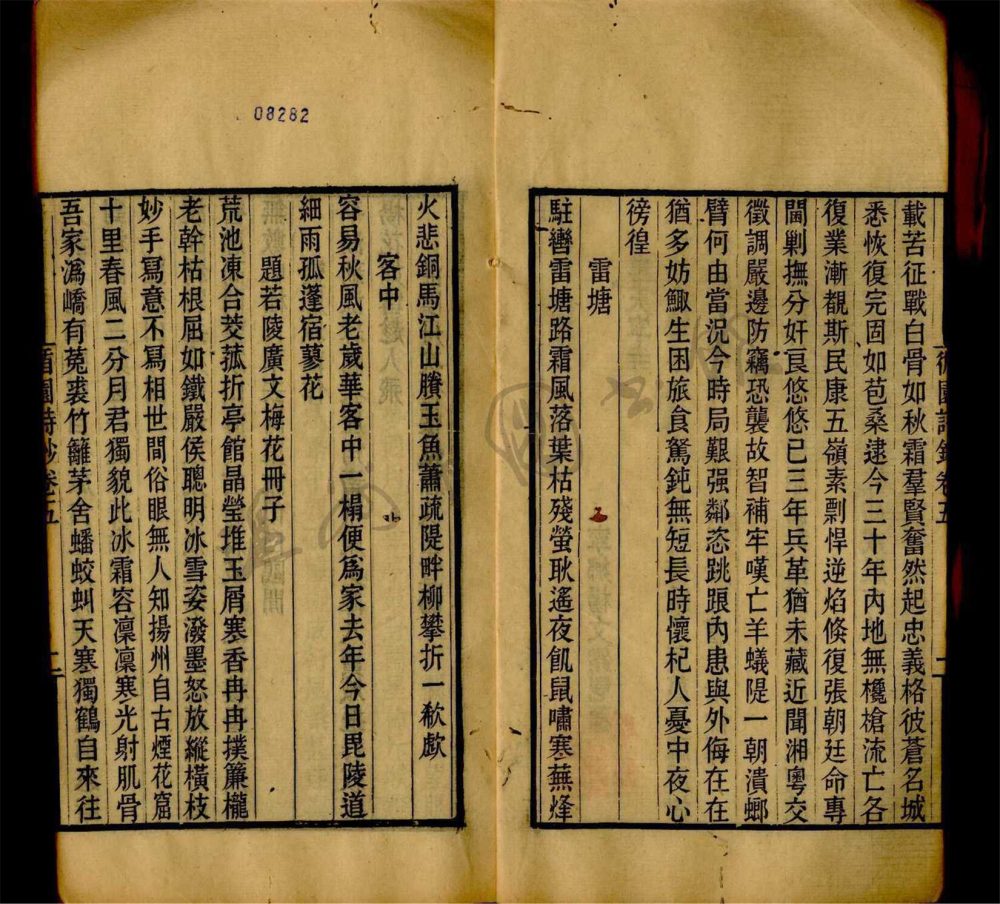 載苦征戰白骨如秋霜羣賢奮然起忠義格彼蒼名城
悉恢復完固如苞桑逮今三十年內地無欃槍流亡各
復業漸覩斯民康五嶺素剽悍逆焰倏復張朝廷命專
閫剿撫分奸良悠悠已三年兵革猶未藏近聞湘粵交
徵調嚴邊防竊恐襲故智補牢嘆亡羊蟻隄一朝潰螂
臂何由當況今時局艱强鄰恣跳踉內患與外侮在在
猶多妨鯫生困旅食駑鈍無短長時懷杞人憂中夜心
徬徨
雷塘
駐轡雷塘路霜風落葉枯殘螢耿遙夜飢鼠嘯寒蕪烽
08282
火悲銅馬江山賸玉魚蕭疏隄畔柳攀折一欷歔
客中
容易秋風老歲華客中一榻便爲家去年今日毘陵道
細雨孤蓬宿蓼花
題若陵廣文梅花冊子
荒池凍合茭菰折亭館晶瑩堆玉屑寒香冉冉撲簾櫳
老幹枯根屈如鐵嚴侯聰明冰雪姿潑墨怒放縱橫枝
妙手寫意不寫相世間俗眼無人知揚州自古煙花窟
十里春風二分月君獨貌此冰霜容凜凜寒光射肌骨
吾家潙嶠有菟裘竹籬茅舍蟠蛟虬天寒獨鶴自來往
循園詩鈔卷五 二